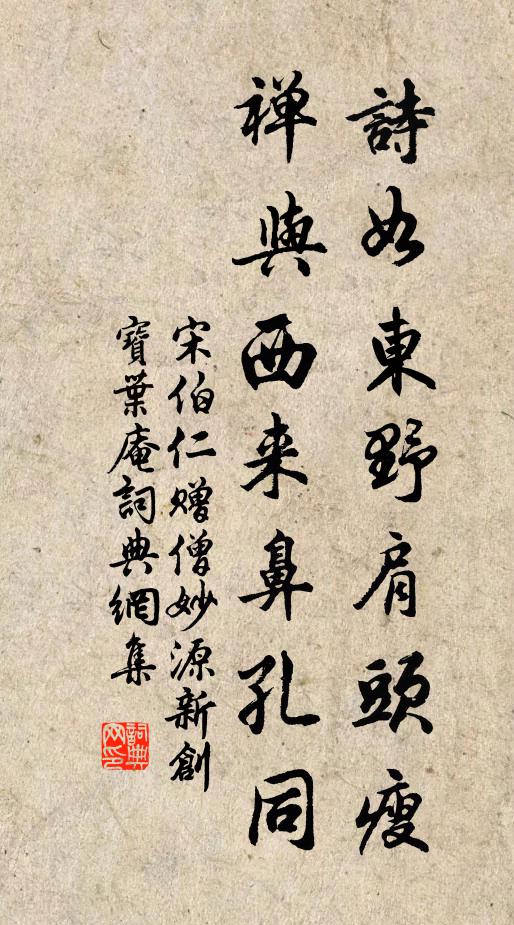 詩如東野肩頭瘦
禪與西来鼻孔同
宋伯仁贈僧妙源新創
寶葉庵詞典網集
詞典
网印